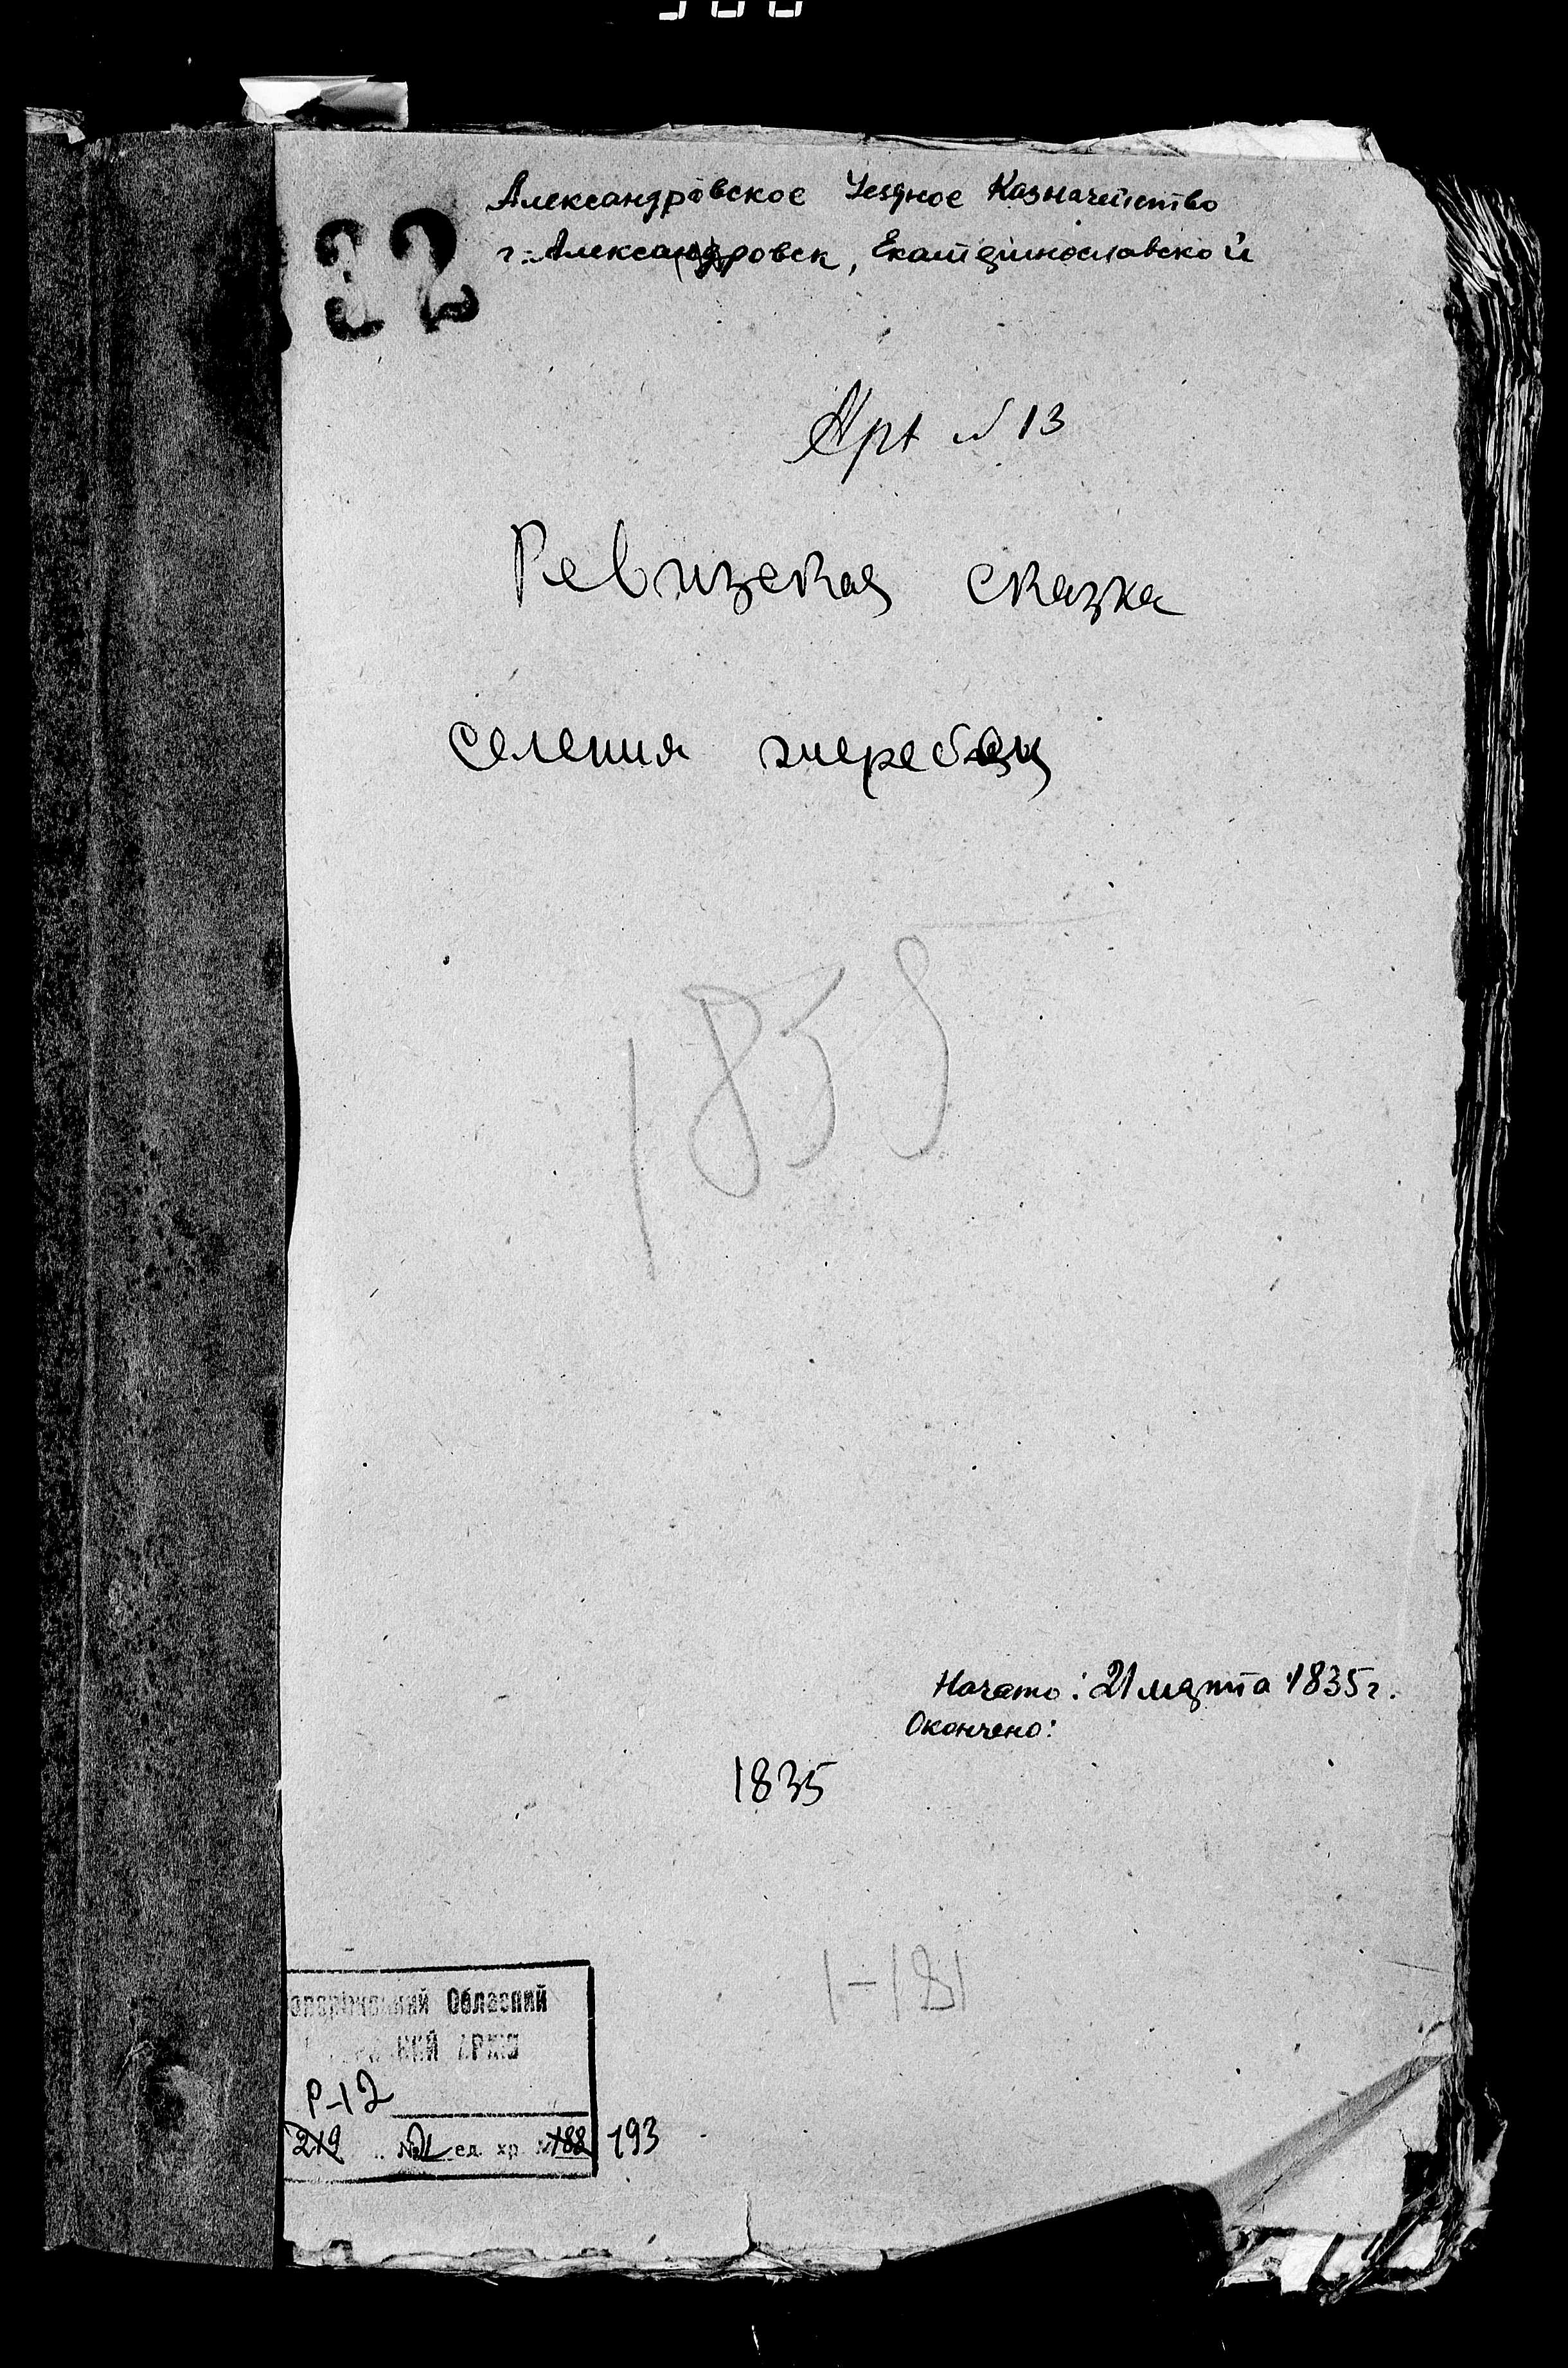 22
Александровское Уездное Казначейство
г. Александровск, Екатеринославской
Арт №13
Ревизская сказка
селения жеребец
1835
Начато: 21 марта 1835 г.
Окончено:
1835
1-181
Обласний
АРХІВ
Р-12
219 № 2 ед. хр. №188 193